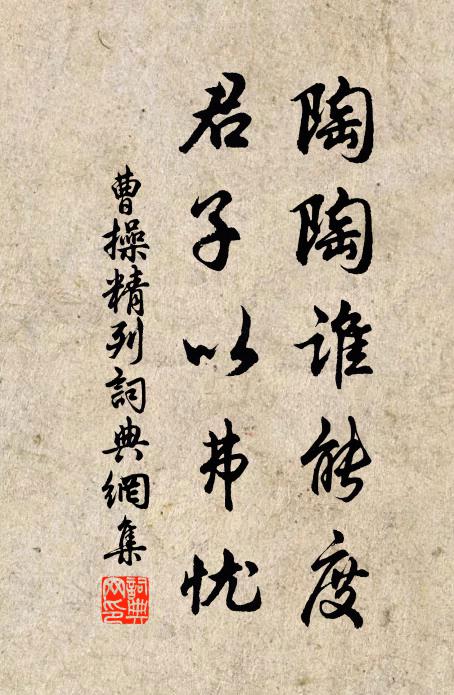 陶陶誰能度
君子以弗忧
曹操精列詞典網集
詞典网印